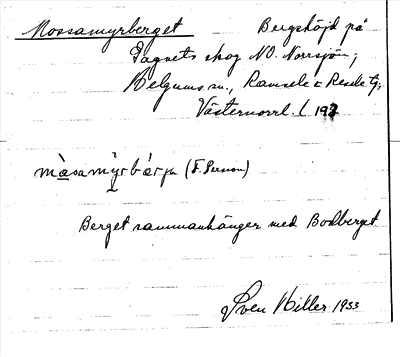 Mossamyrberget Bergshöjd på
Dagnets skog NO. Norrsjön,
Helgums sn., Ramsele o Resele tg,
Västernorrl. l 193
måsamýrbærjə (F. Person)
Berget sammanhänger med Bodberget
Sven Hiller 1933